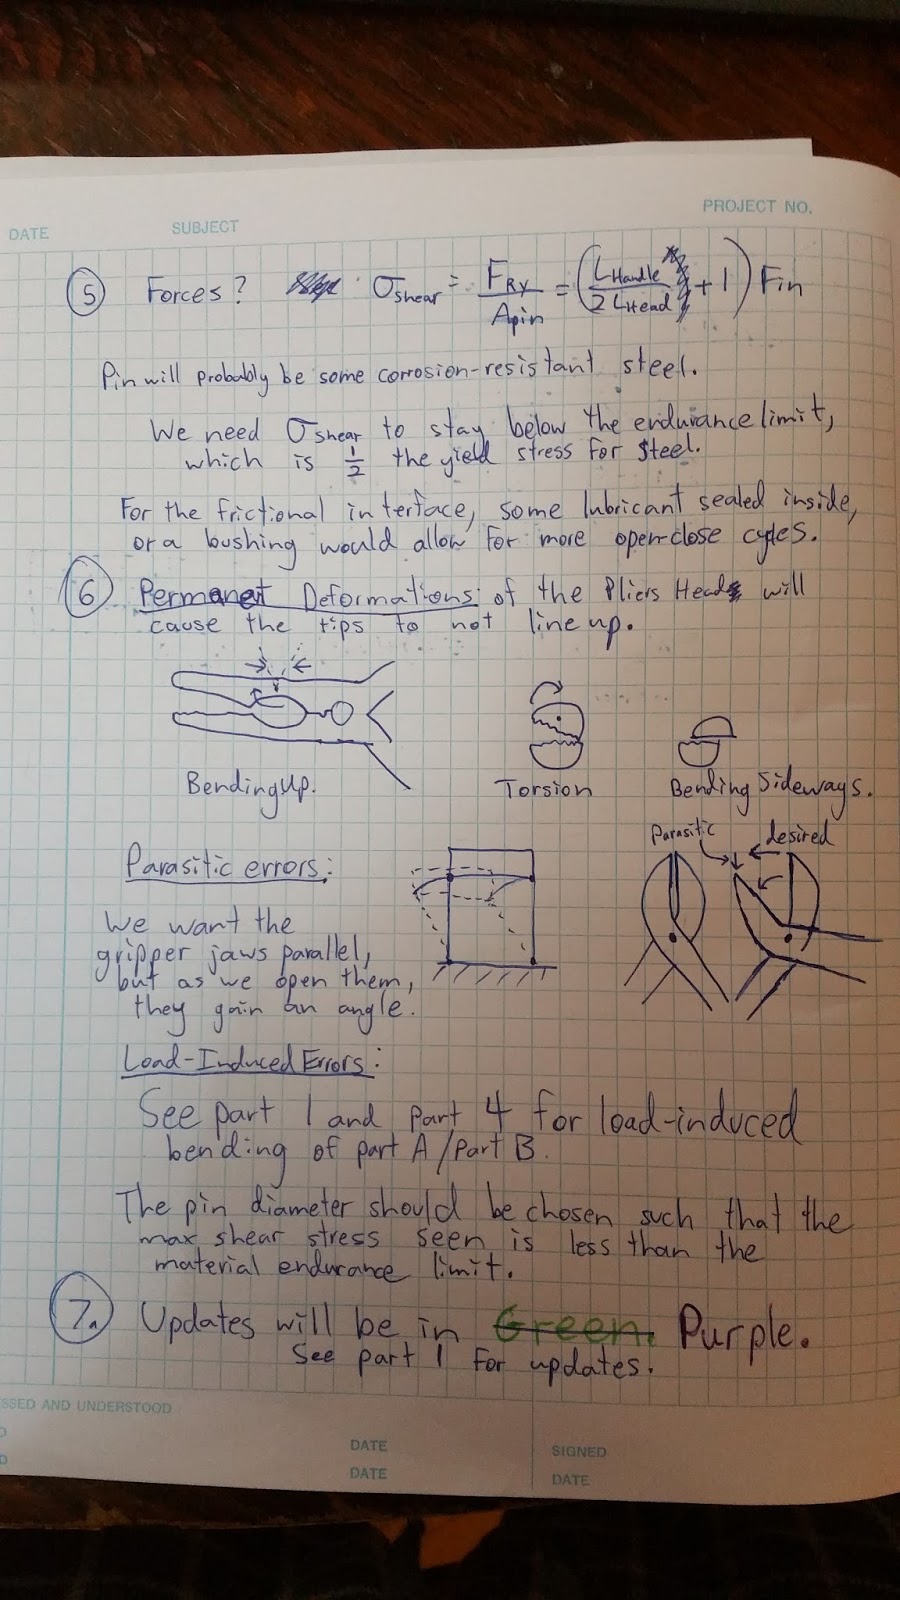 PROJECT NO.
DATE
SUBJECT
5 Forces? σshear = FRy/Apin = (LHandle/2 LHead + 1) Fin
Pin will probably be some corrosion-resistant steel.
We need σshear to stay below the endurance limit,
which is 1/2 the yield stress for steel.
For the frictional interface, some lubricant sealed inside,
or a bushing would allow for more open-close cycles.
6 Permanet Deformations: of the Pliers Head will
cause the tips to not line up.
Bending Up.
Torsion
Bending Sideways.
Parasitic
desired
Parasitic errors:
We want the
gripper jaws parallel,
but as we open them,
they gain an angle.
Load-Induced Errors:
See part 1 and part 4 for load-induced
bending of part A/Part B.
The pin diameter should be chosen such that the
max shear stress seen is less than the
material endurance limit.
7. Updates will be in Green. Purple.
See part 1 for updates.
SSED AND UNDERSTOOD
DATE
SIGNED
DATE
DATE